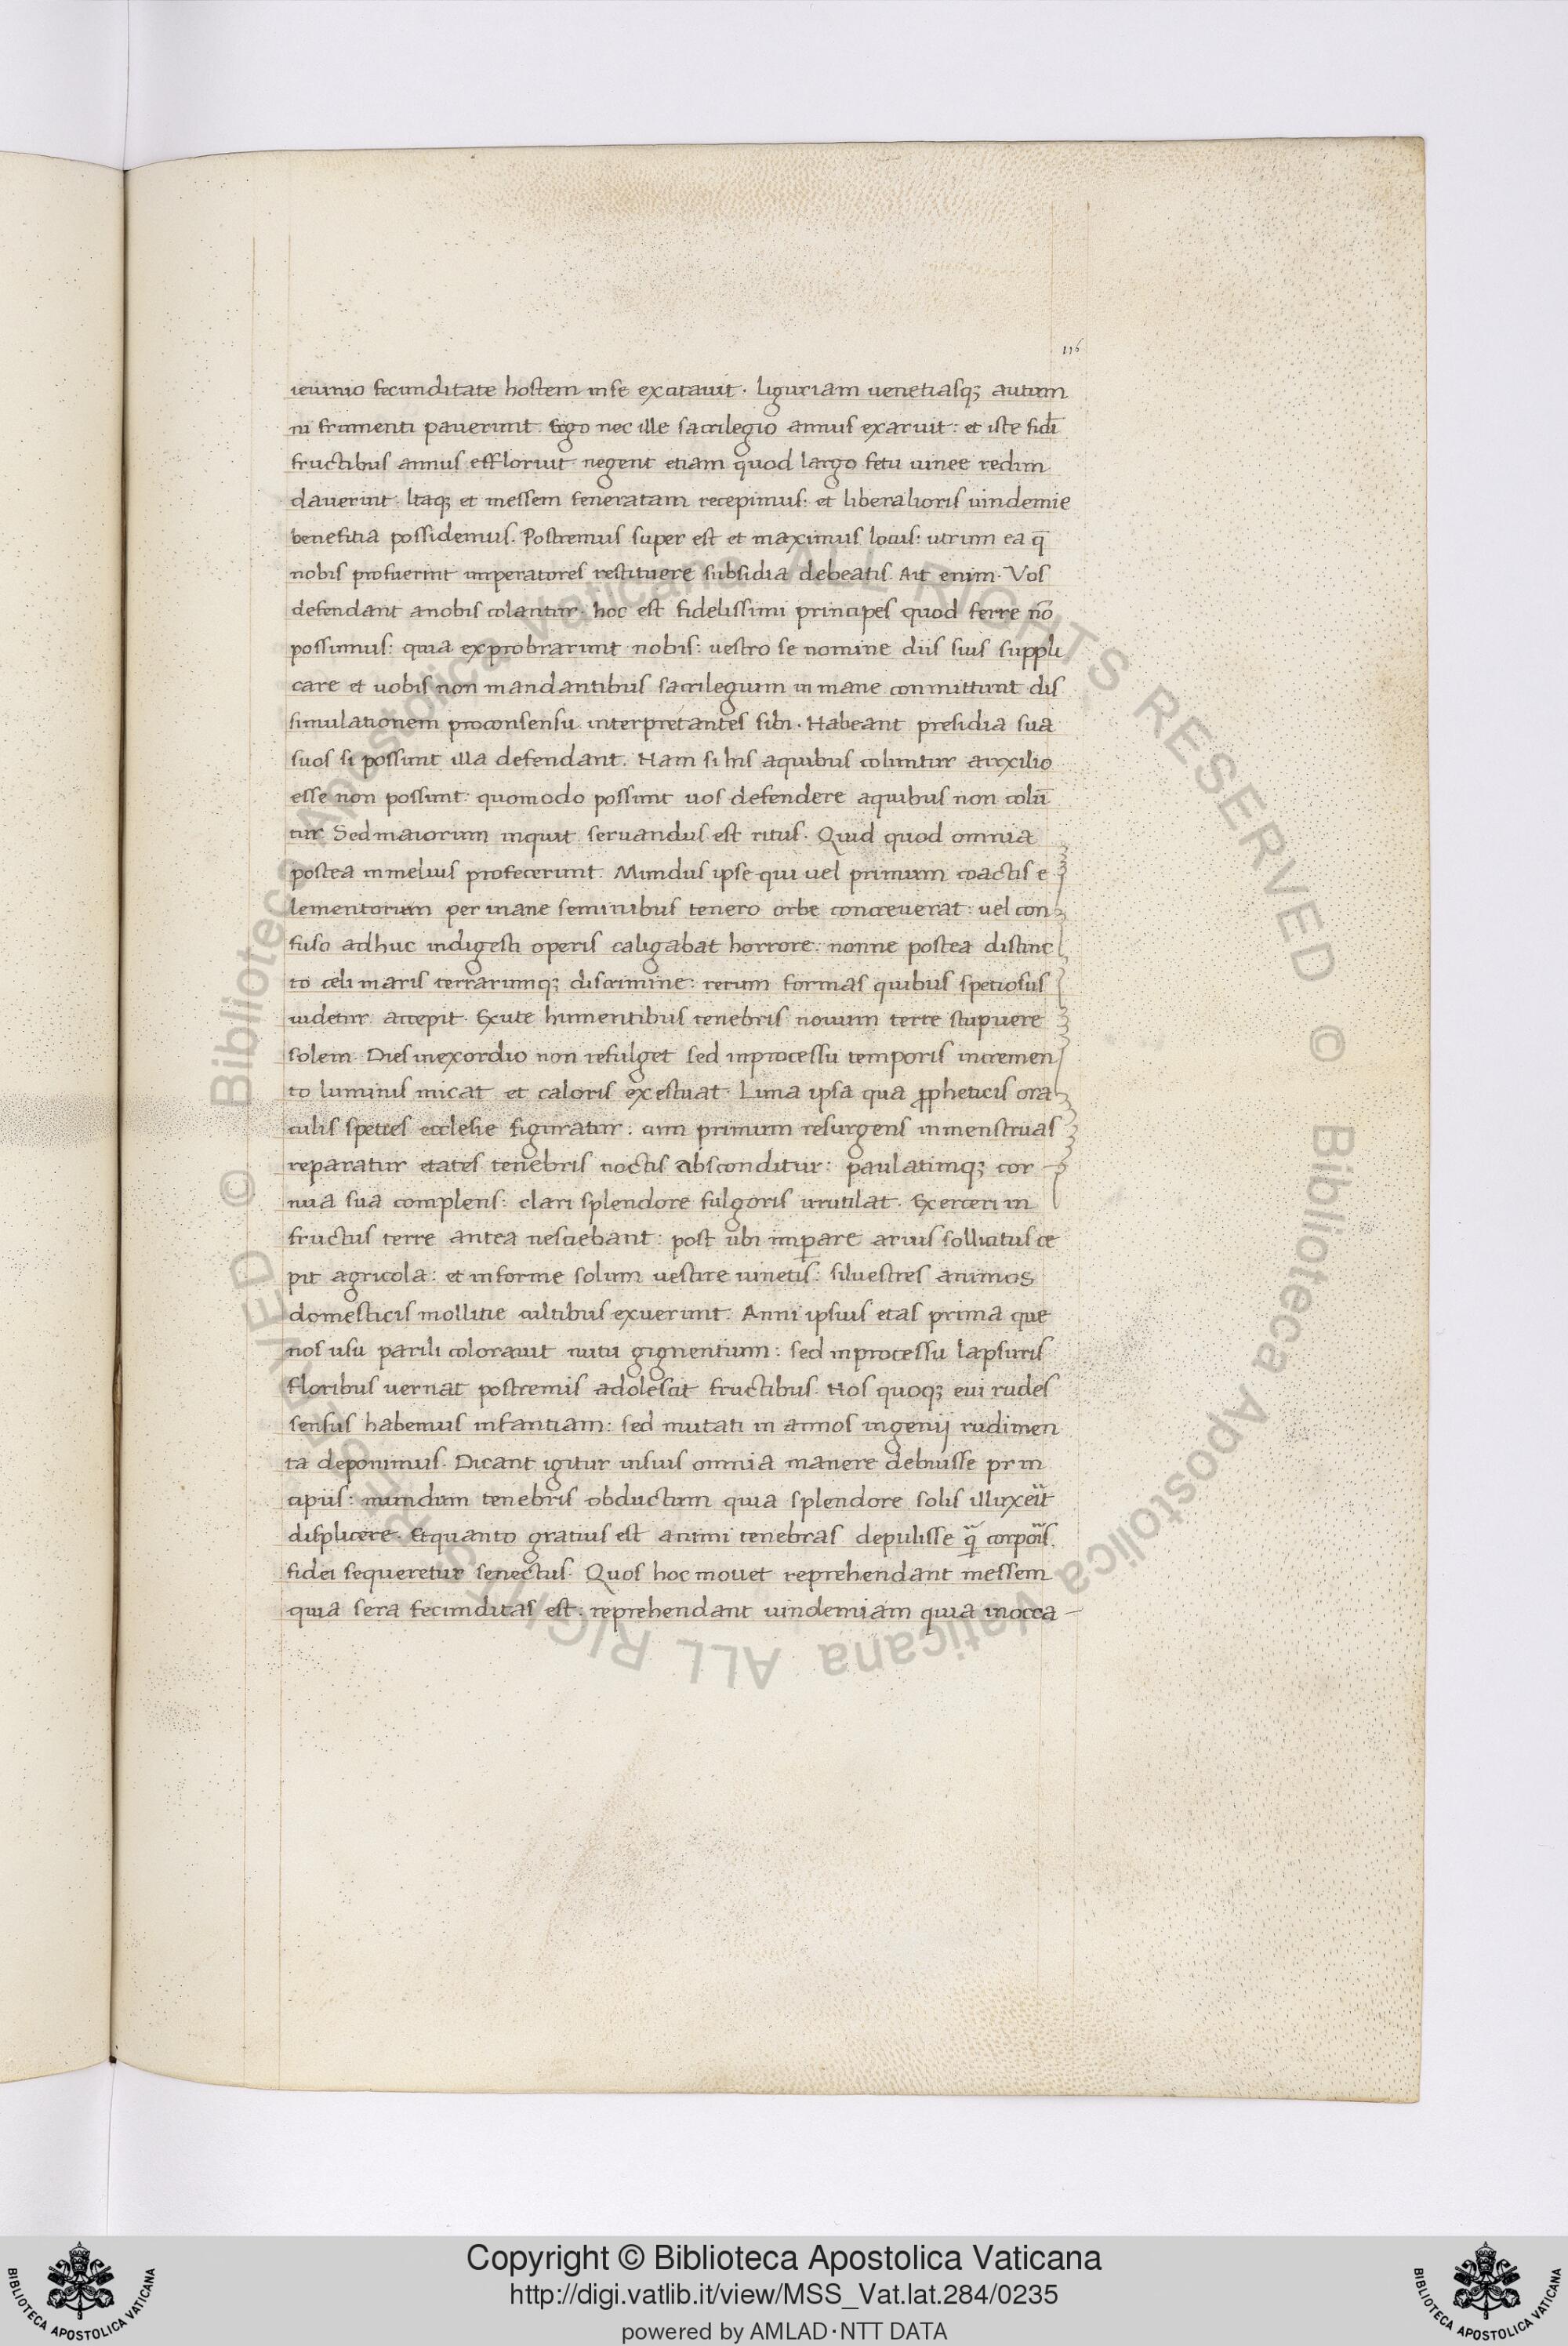 116
ieiunio fecunditate hostem in se excitauit. Liguriam uenetiasq; autum
ni frumenti pauerunt. Ergo nec ille sacrilegio annus exaruit: et iste fidei
fructibus annus effloruit. negent etiam quod largo fetu uinee redun
dauerint. Itaq; et messem feneratam recepimus: et liberalioris uindemie
benefitia possidemus. Postremus super est et maximus locus: utrum ea q̄
nobis profuerint imperatores restituere subsidia debeatis. Ait enim. Vos
defendant a nobis colantur. hoc est fidelissimi principes quod ferre nō
possumus: quia exprobrarunt nobis: uestro se nomine diis suis suppli
care et uobis non mandantibus sacrilegium in mane conmittunt dis
simulationem pro consensu interpretantes sibi. Habeant presidia sua
suos si possunt illa defendant. Nam si his a quibus coluntur auxilio
esse non possunt: quomodo possunt uos defendere a quibus non colū
tur. Sed maiorum inquit seruandus est ritus. Quid quod omnia
postea in melius profecerunt. Mundus ipse qui uel primum coactis e
lementorum per inane seminibus tenero orbe concreuerat: uel con
fuso adhuc indigesti operis caligabat horrore: nonne postea distinc
to celi maris terrarumq; discrimine: rerum formas quibus spetiosus
uidetur accepit. Exute humentibus tenebris nouum terre stupuere
solem. Dies in exordio non refulget sed in processu temporis incremen
to luminis micat et caloris exestuat. Luna ipsa qua ꝓpheticis ora
culis speties ecclesie figuratur: cum primum resurgens in menstruas
reparatur etates tenebris noctis absconditur: paulatimq; cor
nua sua complens: clari splendore fulgoris irrutilat. Exerceri in
fructus terre antea nesciebant: post ubi imꝑare aruis sollicitus ce
pit agricola: et informe solum uestire uinetis: siluestres animos
domesticis mollitie cultibus exuerunt. Anni ipsius etas prima que
nos usu parili colorauit nutu gignentium: sed in processu lapsuris
floribus uernat postremis adolescit fructibus. Nos quoq; eui rudes
sensus habemus infantiam: sed mutati in annos ingenij rudimen
ta deponimus. Dicant igitur in suis omnia manere debuisse prin
cipiis: mundum tenebris obductum quia splendore solis illuxeit
displicere. Et quanto gratius est animi tenebras depulisse q̄ corpois.
fidei sequeretur senectus. Quos hoc mouet reprehendant messem
quia sera fecunditas est: reprehendant uindemiam quia in occa
Copyright © Biblioteca Apostolica Vaticana
http://digi.vatlib.it/view/MSS_Vat.lat.284/0235
powered by AMLAD·NTT DATA
BIBLIOTECA APOSTOLICA VATICANA
BIBLIOTECA APOSTOLICA VATICANA
© Biblioteca Apostolica Vaticana ALL RIGHTS RESERVED © Biblioteca Apostolica Vaticana ALL RIGHTS RESERVED